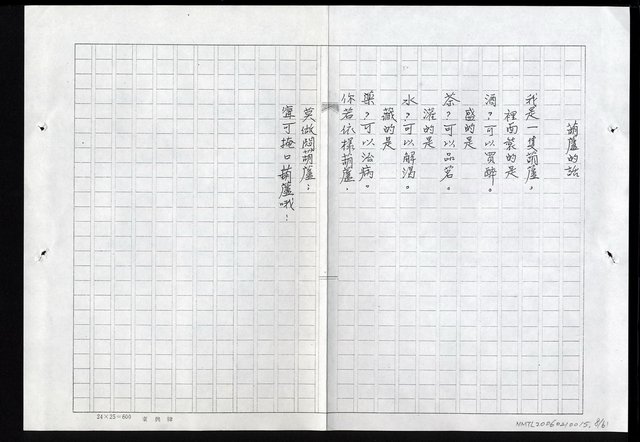 葫蘆的話
我是一隻葫蘆，
裡面裝的是
酒？可以買醉。
盛的是
茶？可以品茗。
灌的是
水？可以解渴。
藏的是
藥？可以治病。
你若依樣葫蘆，
莫做悶葫蘆；
寧可掩口葫蘆哦！
24×25=600
NMTL20060210015, 8/61